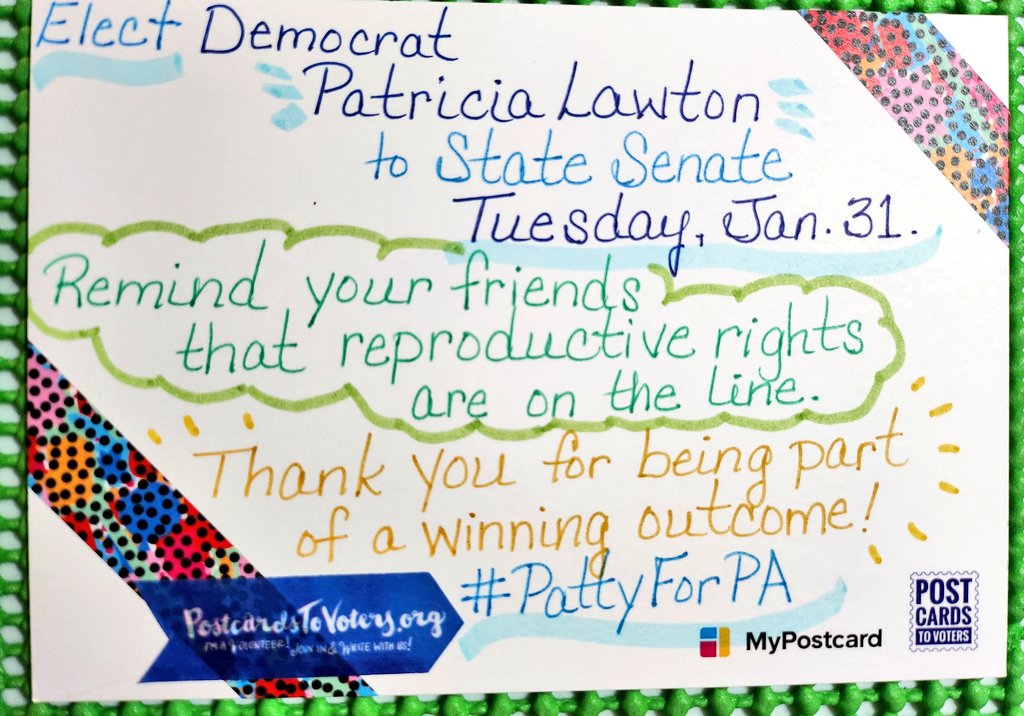 Elect Democrat
Patricia Lawton
to State Senate
Tuesday, Jan. 31.
Remind your friends
that reproductive rights
are on the line.
Thank you for being part
of a winning outcome!
#PattyForPA
PostcardsToVoters.org
I'm a Volunteer! Join in & Write with us!
MyPostcard
POST
CARDS
TO VOTERS